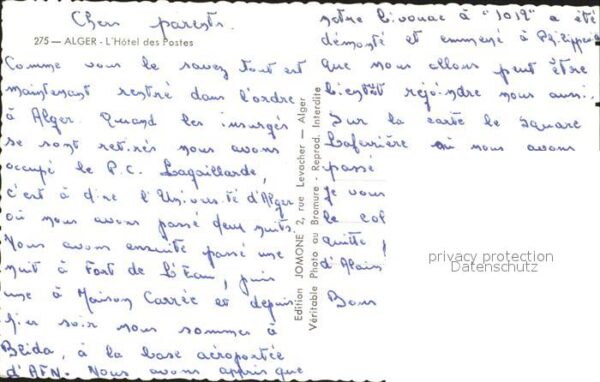 Chers parents.
275 - ALGER - L'Hôtel des Postes
Comme vous le savez tout est
maintenant rentré dans l'ordre
à Alger. Quand les insurgés
se sont retirés nous avons
occupé le P.C. Lagaillarde,
c'est à dire l'Université d'Alger
où nous avons passé deux nuits.
Nous avons ensuite passé une
nuit à Fort de L'Eau, puis
une à Maison Carrée et depuis
hier soir nous sommes à
Blida, à la base aéroportée
d'AFN. Nous avons appris que
Edition JOMONE 2, rue Levacher — Alger
Véritable Photo au Bromure - Reprod. Interdite
notre bivouac à "1019" a été
démonté et emmené à Philippeville
que nous allons peut être
bientôt rejoindre nous aussi.
Sur la carte le square
Laferrière où nous avons
passé
je vous
le col
quitte,
d'Alain
Bons
privacy protection
Datenschutz